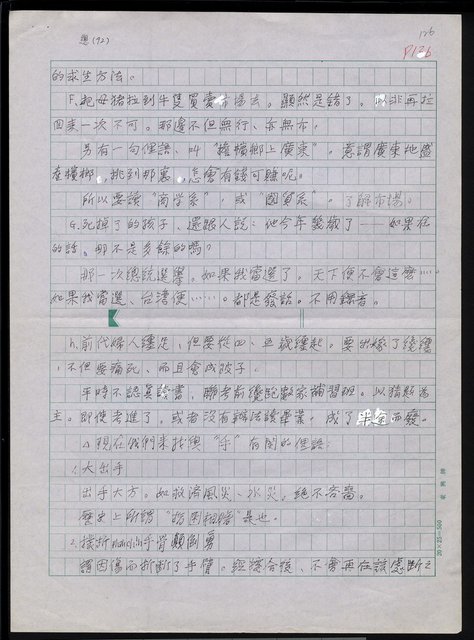 想(72)
126
P126
的求生方法。
F.把母豬拉到牛隻買賣市場去。顯然是錯了。以非再拉
回來一次不可。那邊不但無行、亦無市。
另有一句俚語、叫"擔檳榔上廣東"。意謂廣東地盛
產檳榔,挑到那裏,怎會有錢可賺呢。
所以要讀"商學系",或"國貿系"。了解市場。
G.死掉了的孩子、還跟人說:他今年幾歲了——如果在
的話。那不是多餘的嗎?
那一次總統選舉。如果我當選了。天下便不會這麼……
如果我當選、台灣便……。都是廢話。不用錄者。
h.前代婦人纏足、但要從四、五歲纏起。要出嫁了纔纏
,不但要痛死、而且會成跛子。
平時不認真讀書,聯考前纔跑數家補習班。以猜點為
主。即使考進了,或者沒有辦法讀畢業,成了半途而廢。
△現在我們來找與"手"有關的俚語:
1.大出手
出手大方。如救濟風災、水災。絕不吝嗇。
歷史上所謂"指囷相贈"是也。
2.拔折手骨顛倒勇
謂因傷而折斷了手臂。經接合後、不會再在該處斷之
20×25=500